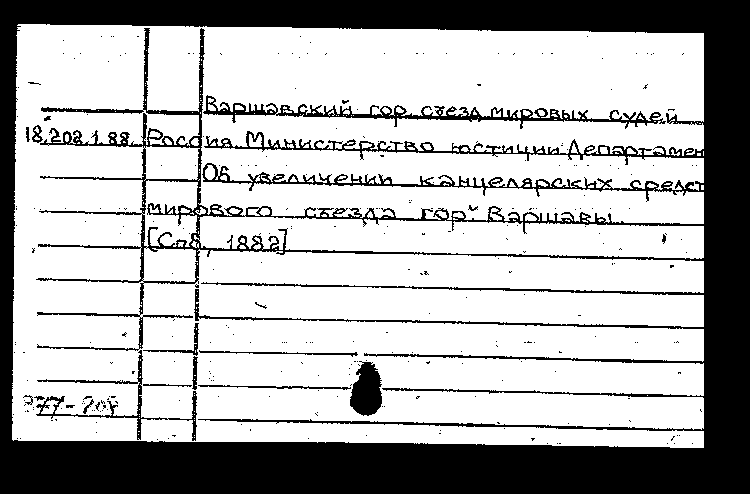 Варшавский гор. съезд мировых судей
18.202.1.88. Россия Министерство юстиции Департамен
Об увеличении канцелярских средст
мирового съезда гор. Варшавы.
[Спб, 1882]